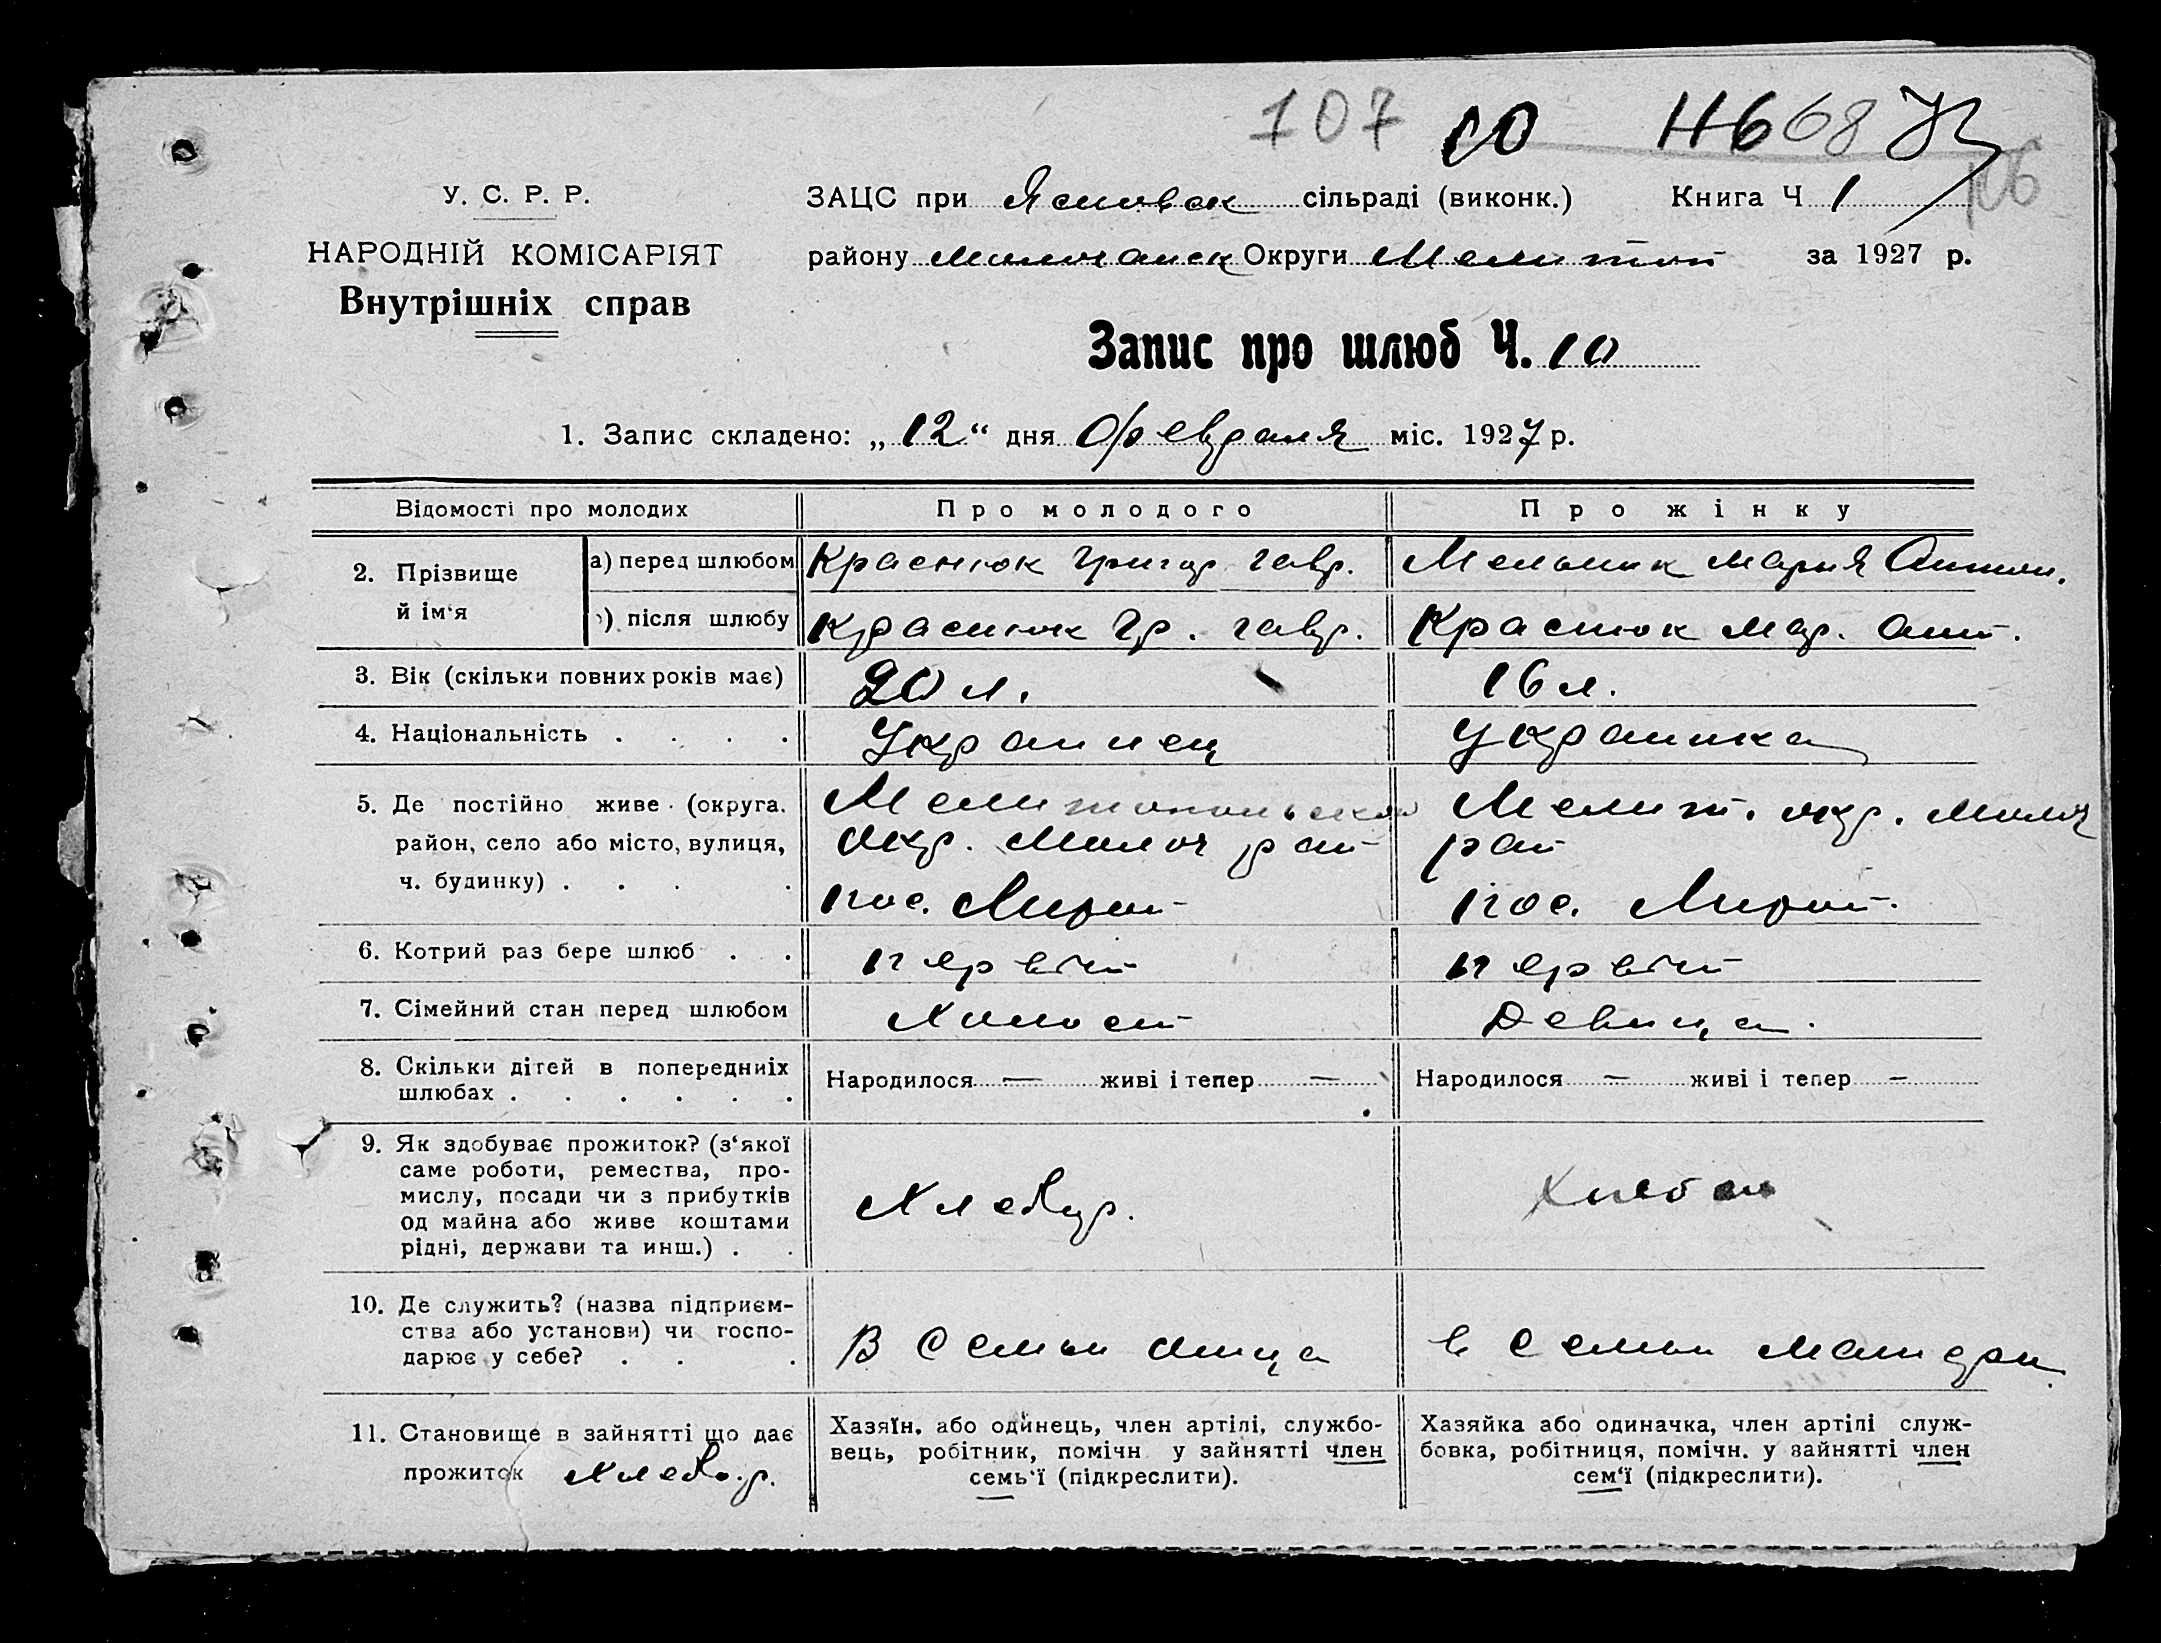 107 10 Н668
106
У. С. Р. Р.
ЗАЦС при сільраді (виконк.) Книга Ч 1
НАРОДНІЙ КОМІСАРІЯТ
району Молочанск Округи Мелитоп за 1927 р.
Внутрішніх справ
Запис про шлюб Ч. 10
1. Запис складено: „12“ дня февраля міс. 1927 р.
Відомості про молодих
Про молодого
Про жінку
2. Прізвище й ім‘я
а) перед шлюбом
Краснюк Григор. Гавр.
Мельник Мария Антон.
) після шлюбу
Краснюк Гр. Гавр.
Краснюк Мар. Ант.
3. Вік (скільки повних років має)
20 л.
16 л.
4. Національність . . . .
Украинец
Украинка
5. Де постійно живе (округа.
район, село або місто, вулиця,
ч. будинку) . . . .
Мелитопольской
окр. Молоч рай
пос. Мирот
Мелит. окр. Молоч
рай
пос. Мирот.
6. Котрий раз бере шлюб . .
первый
первый
7. Сімейний стан перед шлюбом
Холост
Девица.
8. Скільки дітей в попередниіх
шлюбах . . . . . .
Народилося — живі і тепер —
Народилося — живі і тепер —
9. Як здобуває прожиток? (з‘якої
саме роботи, ремества, про-
мислу, посади чи з прибутків
од майна або живе коштами
рідні, держави та инш.) . .
Хлебор.
Хлебоп
10. Де служить? (назва підприєм-
ства або установи) чи госпо-
дарює у себе? . . .
В семьи отца
в семьи матери.
11. Становище в зайнятті що дає
прожиток Хлебор.
Хазяїн, або одинець, член артілі, службо-
вець, робітник, помічн у зайнятті член
семь‘ї (підкреслити).
Хазяйка або одиначка, член артілі служ-
бовка, робітниця, помічн. у зайнятті член
сем‘ї (підкреслити).